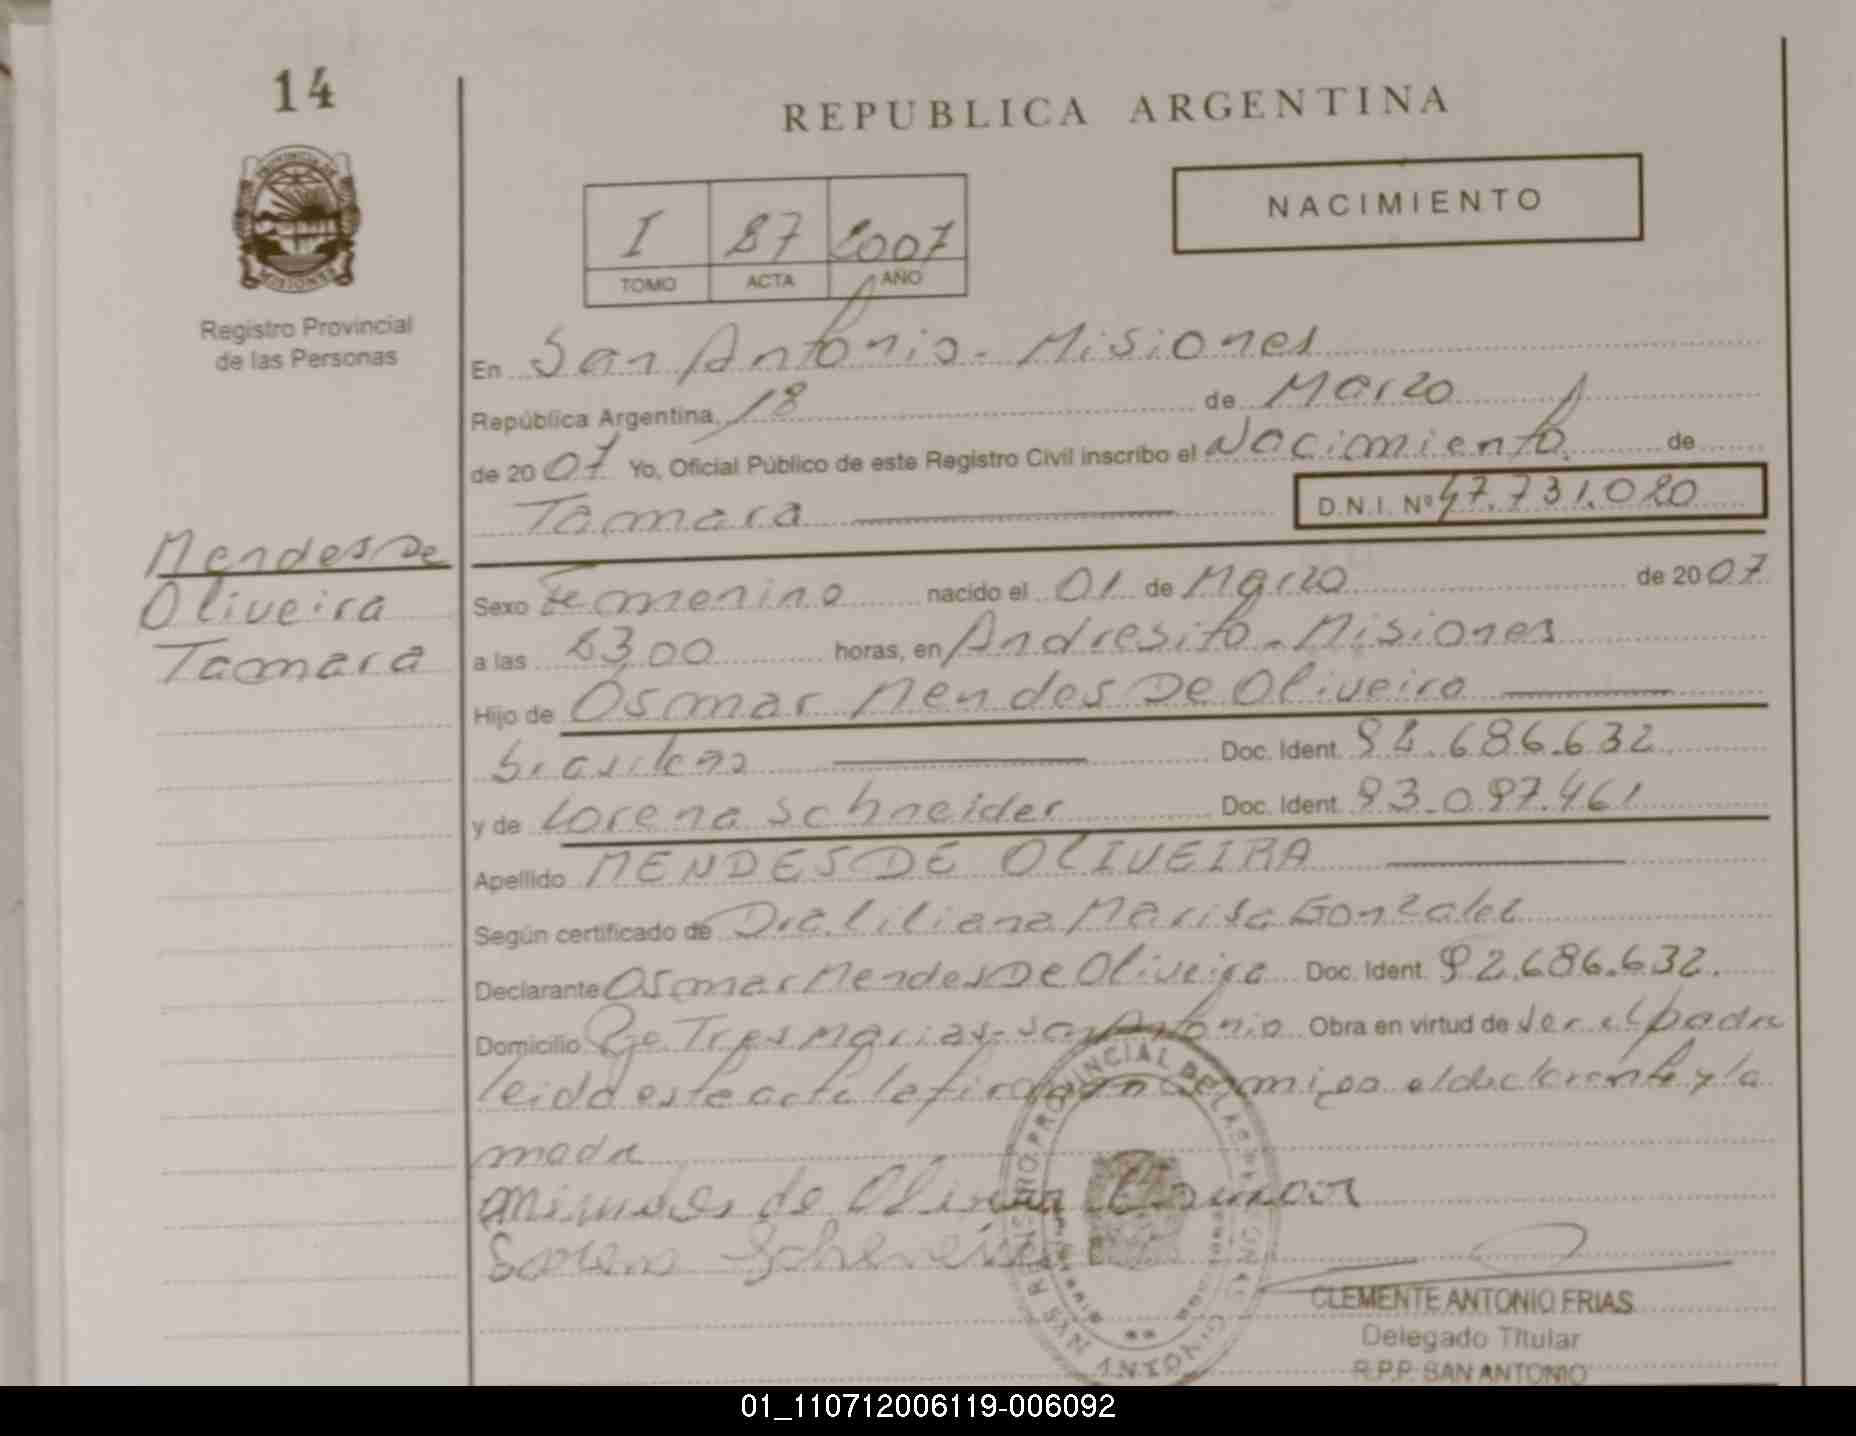 14
REPUBLICA ARGENTINA
NACIMIENTO
I 27 2007
TOMO ACTA AÑO
Registro Provincial
de las Personas
En San Antonio - Misiones
República Argentina, 18 de Marzo
de 2007 Yo, Oficial Público de este Registro Civil inscribo el Nacimiento de
Tamara D.N.I. Nº 47.731.020
Mendes De
Oliveira
Tamara
Sexo Femenino nacido el 01 de Marzo de 2007
a las 23,00 horas, en Andresito - Misiones
Hijo de Osmar Mendes De Oliveira
brasileño Doc. Ident. 92.686.632
y de Lorena Schneider Doc. Ident. 93.097.461
Apellido MENDES DE OLIVEIRA
Según certificado de Dra. Liliana Marisa Gonzalez
Declarante Osmar Mendes De Oliveira Doc. Ident. 92.686.632.
Domicilio Pje. Tres Marias - San Antonio Obra en virtud de ser el padre
leida este acta la firman conmigo el declarante y la
madre
Mendes de Oliveira Osmar
Lorena Schneider
REGISTRO PROVINCIAL DE LAS PERSONAS
CLEMENTE ANTONIO FRIAS
Delegado Titular
R.P.P. SAN ANTONIO
01_110712006119-006092